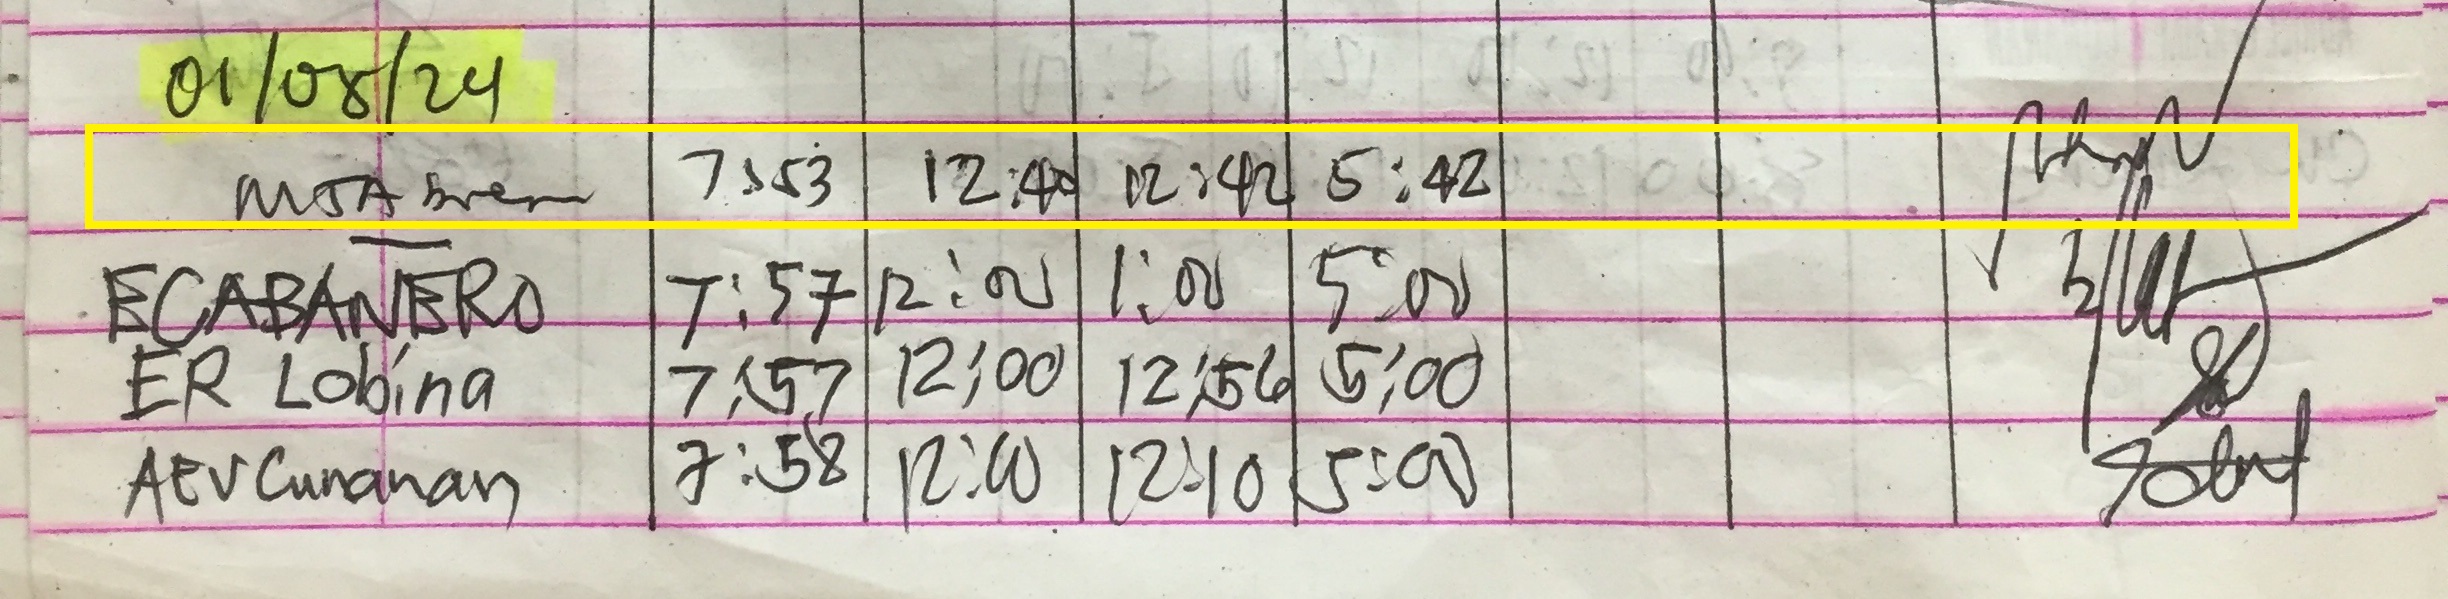 01/08/24
MJA 7:53 12:40 12:42 5:42
ECABAÑERO 7:57 12:00 1:00 5:00
ER Lobina 7:57 12:00 12:56 5:00
AEV Cunanan 7:58 12:00 12:10 5:00